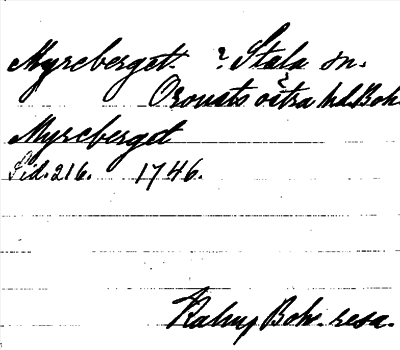 Myrcberget. ? Stala sn.
Orousts östra hd. Boh.
Myrcberget
Sid. 216. 1746.
Kalm, Boh. resa.